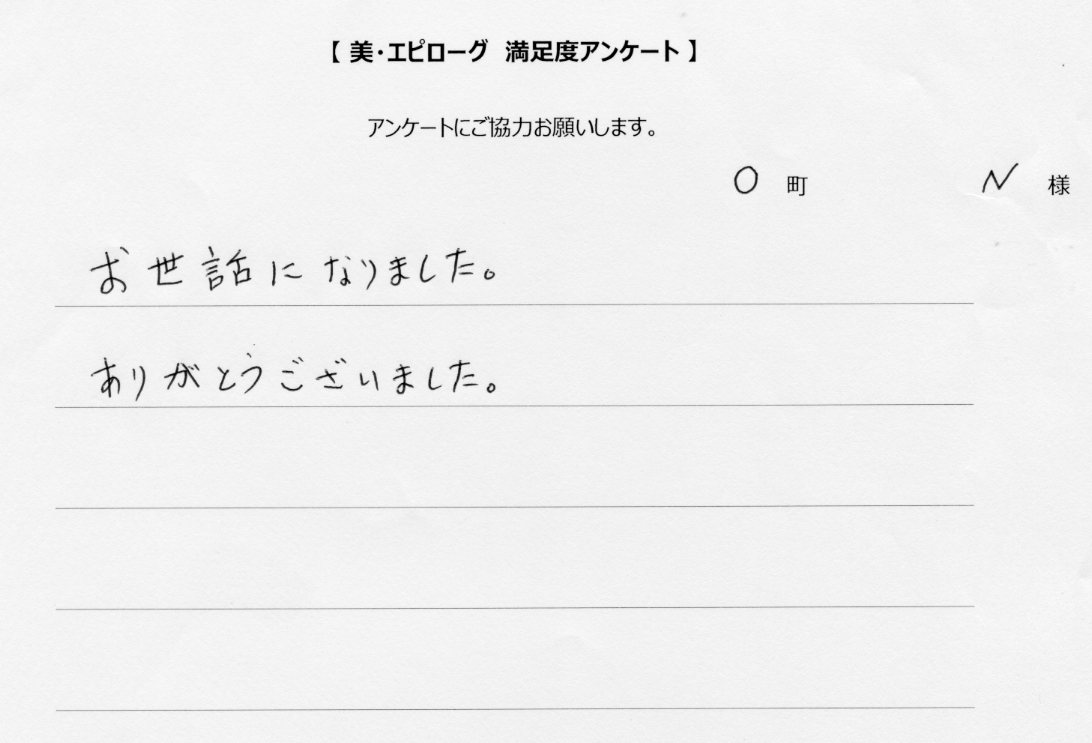 【 美・エピローグ 満足度アンケート 】
アンケートにご協力お願いします。
O 町 N 様
お世話になりました。
ありがとうございました。